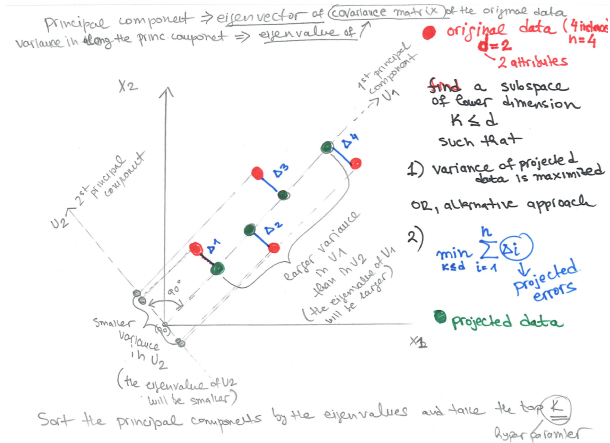 Principal component ⇒ eigenvector of covariance matrix of the original data
variance in along the princ component ⇒ eigenvalue of
original data (4 instances
d=2 n=4
2 attributes
find a subspace
of lower dimension
K ≤ d
such that
1) variance of projected
data is maximized
OR, alternative approach
2) min K≤d Σ i=1 n Δi
projected
errors
projected data
X2
1st principal
component
U1
2nd principal
component
U2
Δ3
Δ4
Δ1
Δ2
90°
larger variance
in U1
than in U2
(the eigenvalue of U1
will be larger)
smaller
variance
in U2
(the eigenvalue of U2
will be smaller)
(0,0)
X1
Sort the principal components by the eigenvalues and take the top K
hyperparamter